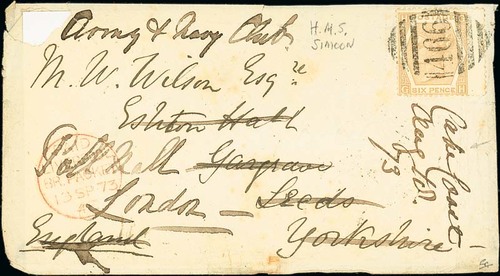 Army & Navy Club
H.M.S.
SIMOON
466
SIX PENCE
M. W. Wilson Esqre
Eshton Hall
Pall Mall Gargrave
London - Leeds
England Yorkshire -
Cape Coast
Aug 10.
73
13 SP 73